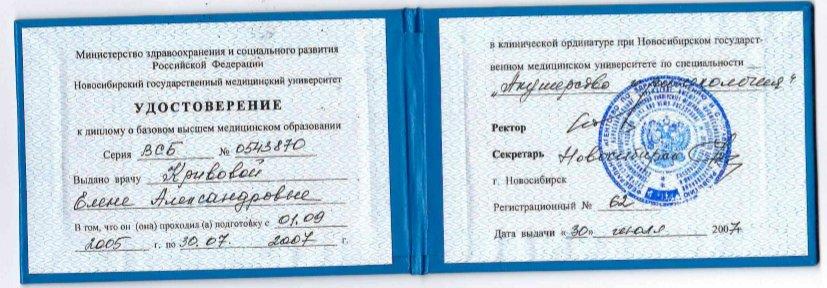 Министерство здравоохранения и социального развития
Российской Федерации
Новосибирский государственный медицинский университет
УДОСТОВЕРЕНИЕ
к диплому о базовом высшем медицинском образовании
Серия ВСБ № 0543870
Выдано врачу Кривовой
Елене Александровне
В том, что он (она) проходил (а) подготовку с 01.09
2005 г. по 30.07. 2007 г.
в клинической ординатуре при Новосибирском государст-
венном медицинском университете по специальности
„Акушерство и гинекология“
Ректор
Секретарь
г. Новосибирск
Регистрационный № 62
Дата выдачи «30» июля 2007г.